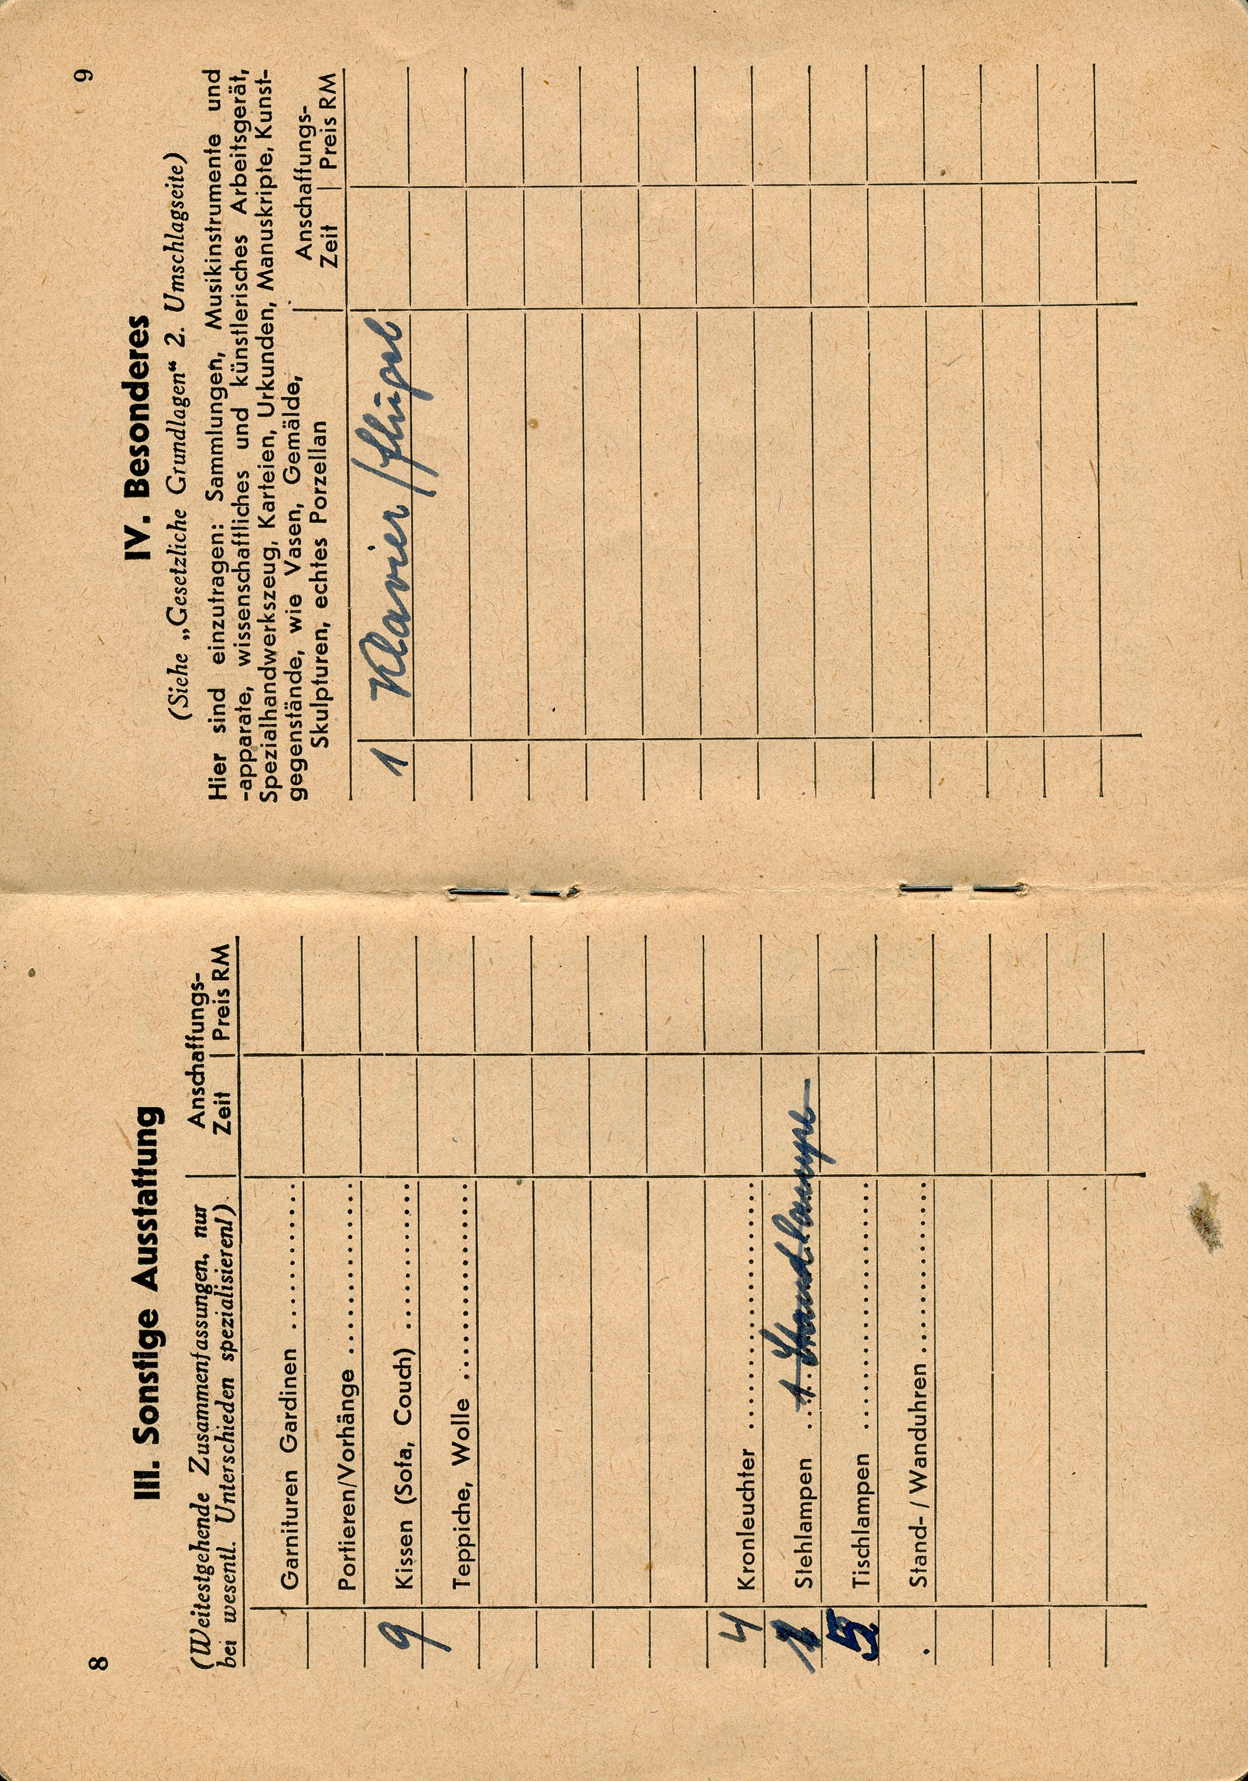 8
III. Sonstige Ausstattung
(Weitestgehende Zusammenfassungen, nur
bei wesentl. Unterschieden spezialisieren!)
Anschaffungs-
Zeit | Preis RM
Garnituren Gardinen ..............
Portieren/Vorhänge ..............
9 Kissen (Sofa, Couch) ..............
Teppiche, Wolle ..............
4 Kronleuchter ..............
Stehlampen ... 1 Standlampe
5 Tischlampen ..............
Stand- / Wanduhren ..............
9
IV. Besonderes
(Siehe „Gesetzliche Grundlagen“ 2. Umschlagseite)
Hier sind einzutragen: Sammlungen, Musikinstrumente und
-apparate, wissenschaftliches und künstlerisches Arbeitsgerät,
Spezialhandwerkszeug, Karteien, Urkunden, Manuskripte, Kunst-
gegenstände, wie Vasen, Gemälde,
Skulpturen, echtes Porzellan
Anschaffungs-
Zeit | Preis RM
1 Klavier / Flügel